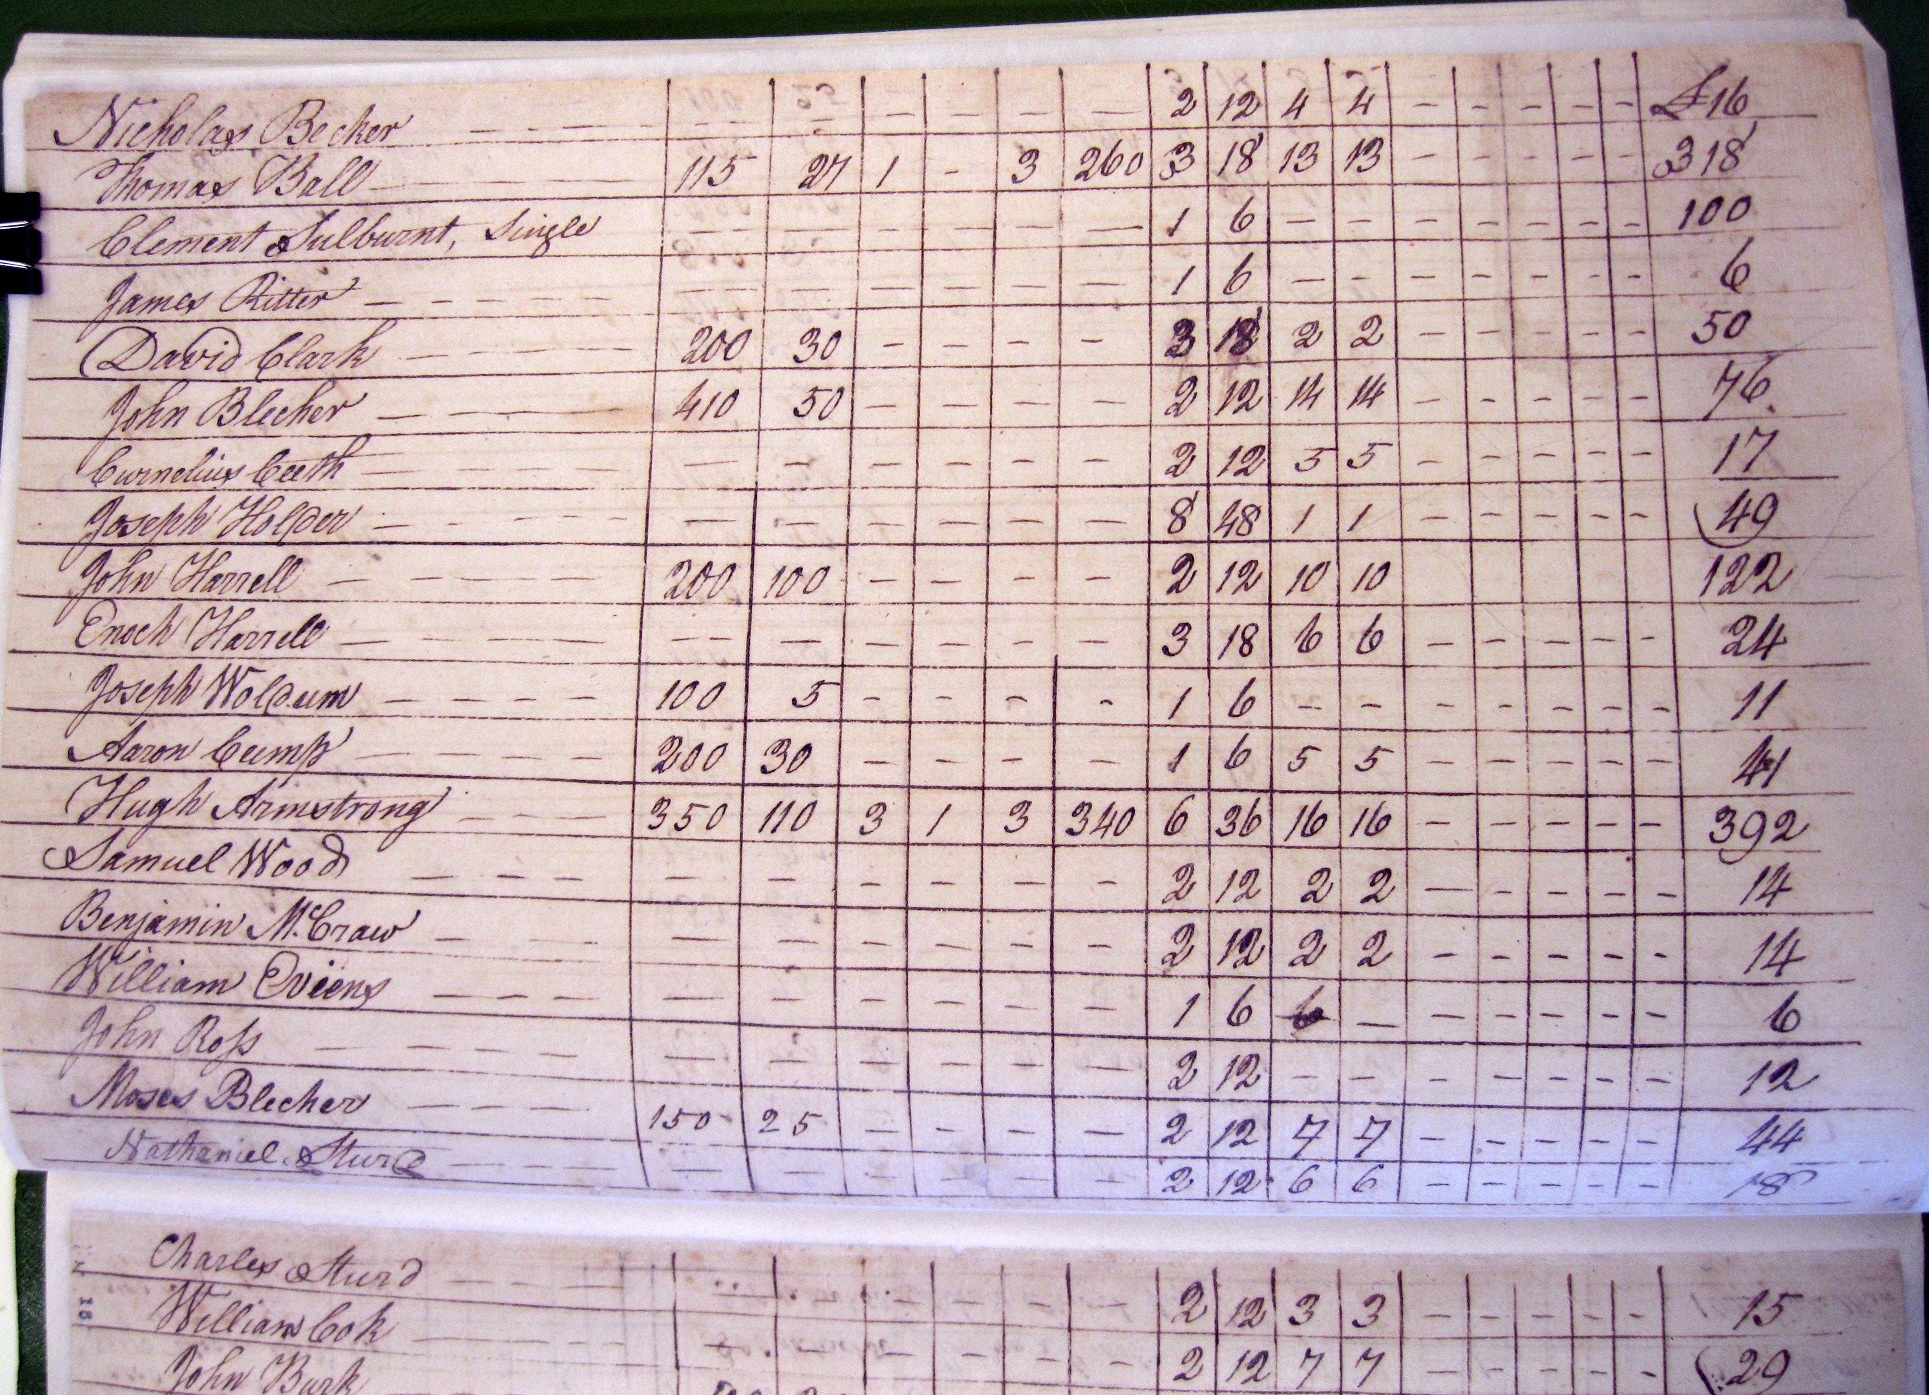 Nicholas Becker — — — — — — — — — 2 12 4 4 — — — — — £16
Thomas Ball — 115 27 1 - 3 260 3 18 13 13 — — — — — 318
Clement Sulburnt, Single — — — — — — 1 6 — — — — — — — 100
James Ritter — — — — — — 1 6 — — — — — — — 6
David Clark — 200 30 — — — — 3 18 2 2 — — — — — 50
John Blecher — 410 50 — — — — 2 12 14 14 — — — — — 76.
Curnelius Ceeth — — — — — — 2 12 5 5 — — — — — 17
Joseph Holder — — — — — — 8 48 1 1 — — — — — 49
John Harrell — 200 100 — — — — 2 12 10 10 122
Enoch Harrell — — — — — — 3 18 6 6 — — — — — 24
Joseph Woldum — 100 5 - - - - 1 6 — — — — — — — 11
Aaron Cump — 200 30 — — — — 1 6 5 5 — — — — — 41
Hugh Armstrong — 350 110 3 1 3 340 6 36 16 16 — — — — — 392
Samuel Wood — — — — — — 2 12 2 2 — — — — — 14
Benjamin McCraw — — — — — — 2 12 2 2 — — — — — 14
William Oviens — — — — — — 1 6 — — — — — — 6
John Ross — — — — — — 2 12 — — — — — — — 12
Moses Blecher — 150 25 — — — — 2 12 7 7 — — — — — 44
Nathaniel Sturd — — — — — — 2 12 6 6 — — — — — 18
Charles Sturd — — — — — — 2 12 3 3 — — — — — 15
William Cok — — — — — — 2 12 7 7 — — — — — 29
John Burk